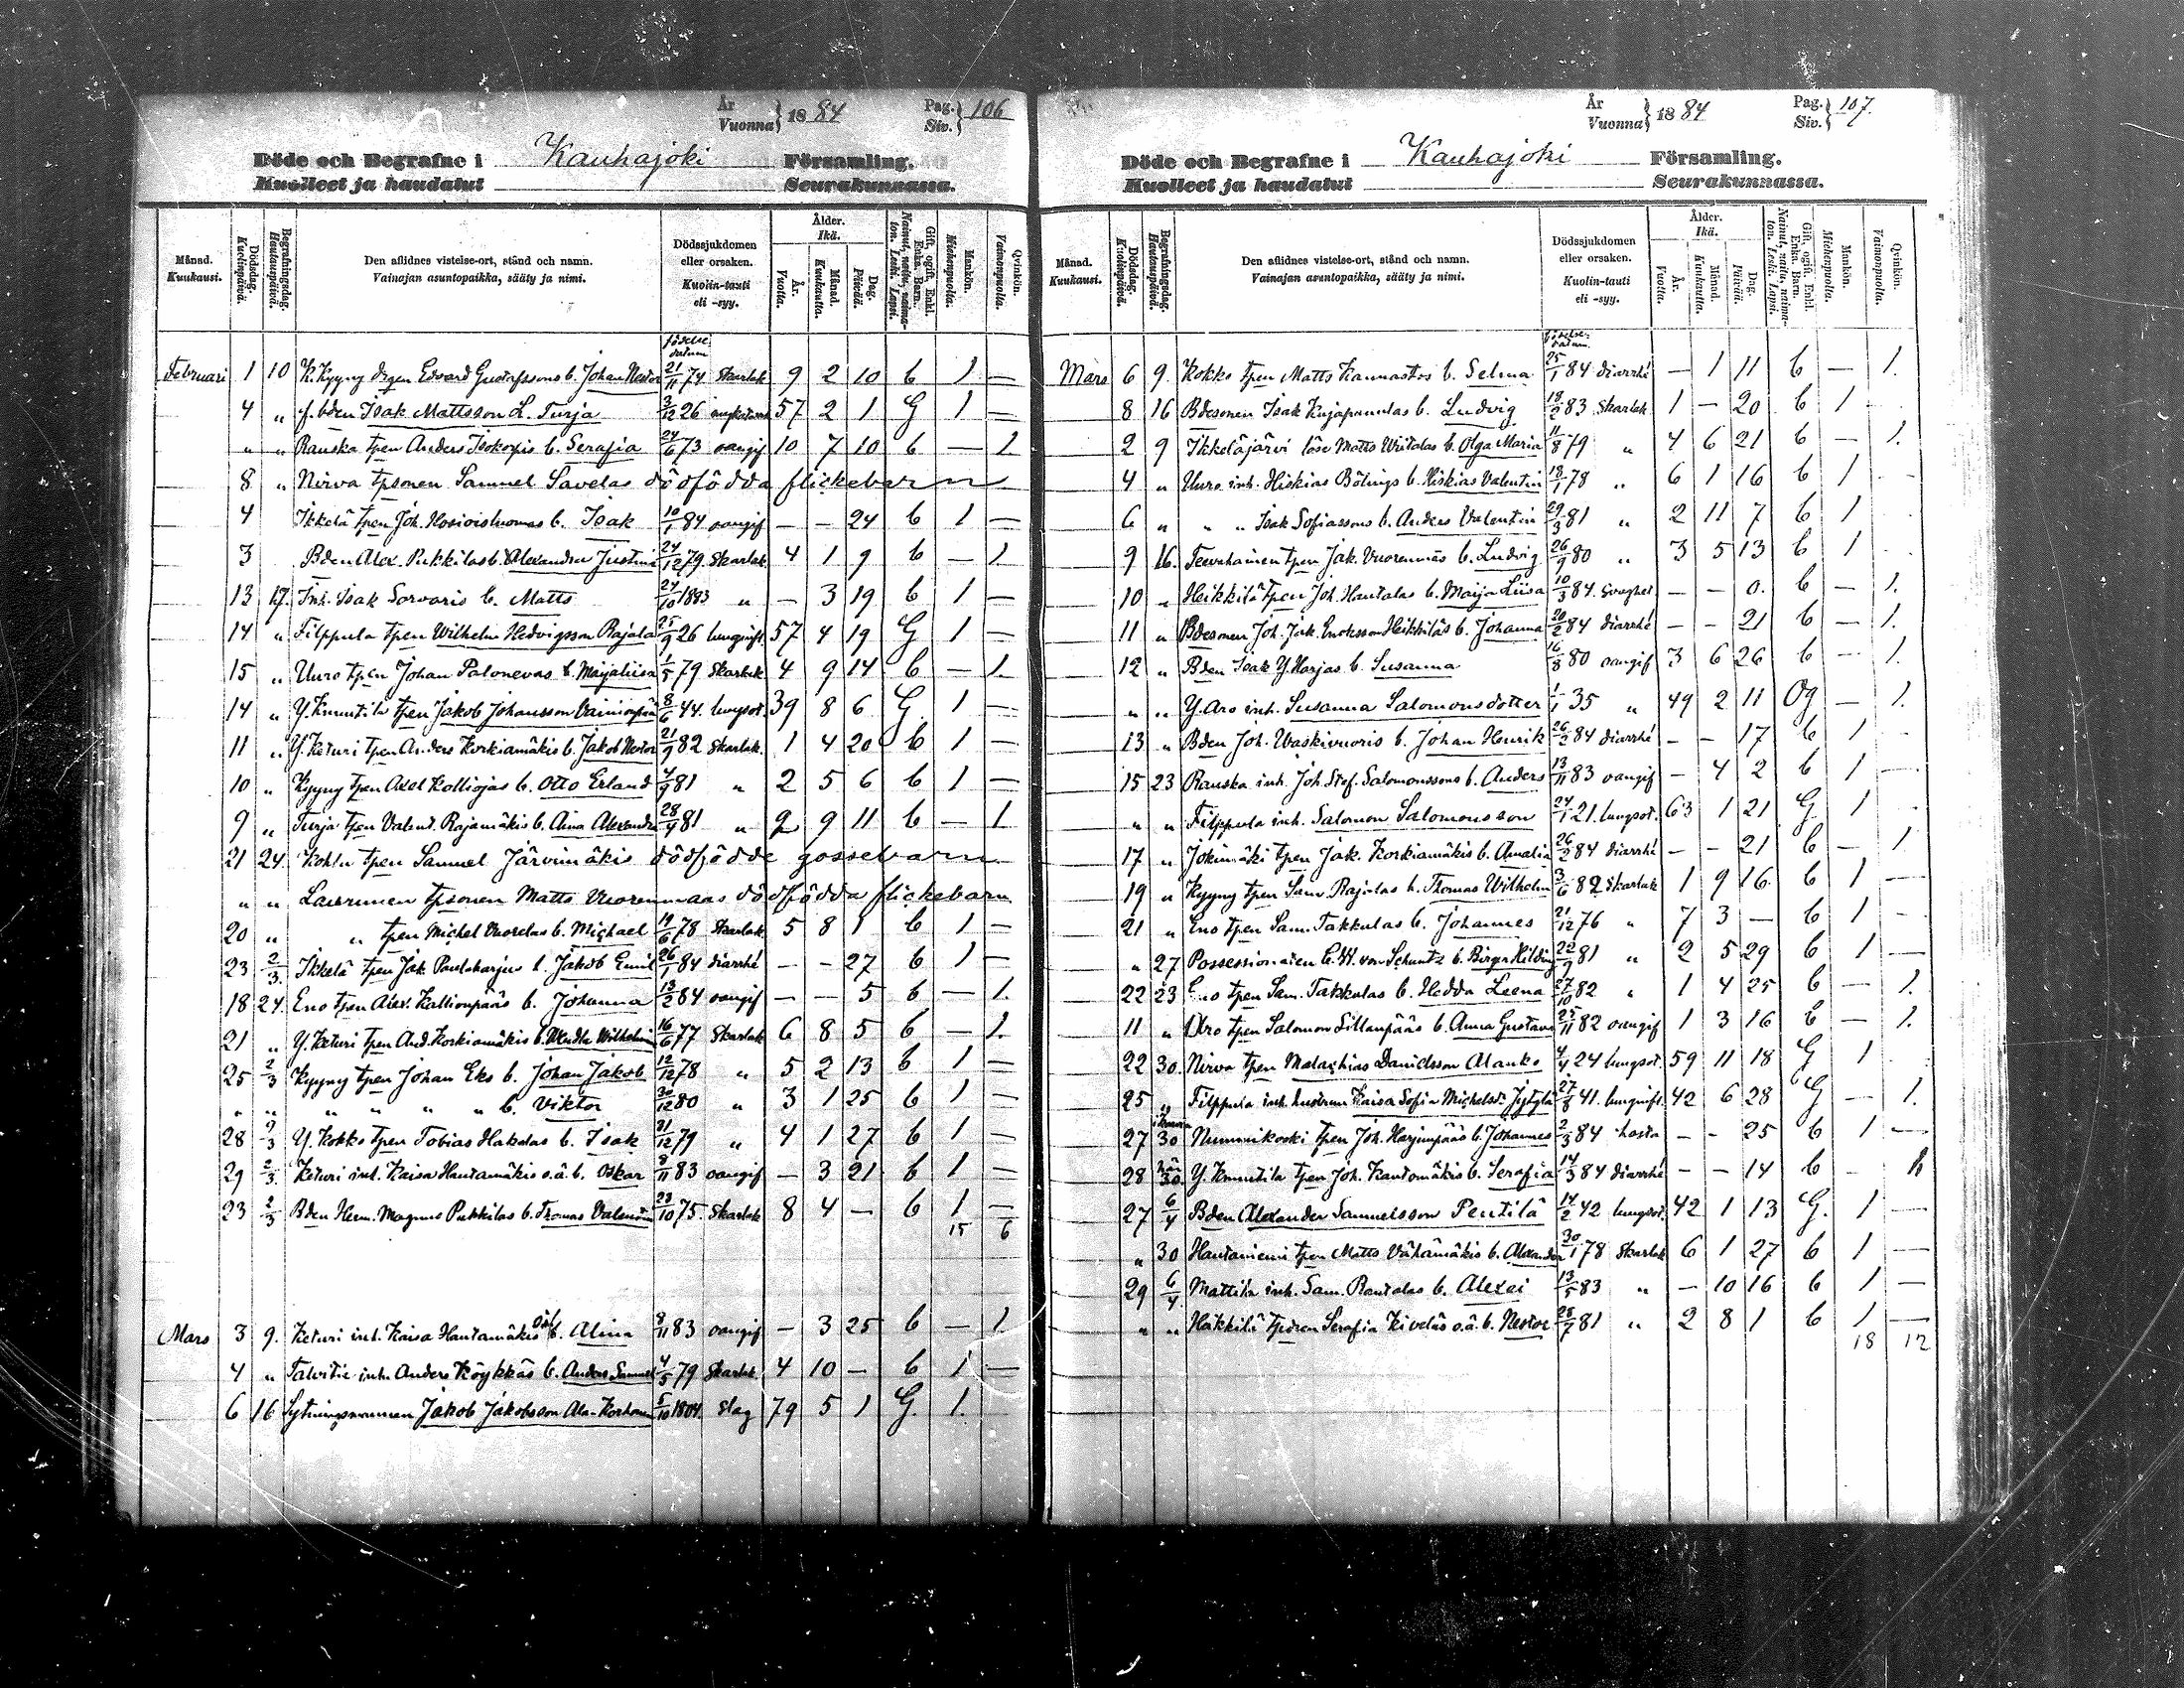 År Vuonna } 1884 Pag. Siv. } 106
Döde och Begrafne i Kauhajoki Församling.
Kuolleet ja haudatut Seurakunnassa.
Månad. Kuukausi. Dödsdag. Kuolinpäivä. Begrafningsdag. Hautauspäivä. Den aflidnes vistelse-ort, stånd och namn. Vainajan asuntopaikka, sääty ja nimi. Dödssjukdomen eller orsaken. Kuolin-tauti eli -syy. Ålder. Ikä. År. Vuotta. Månad. Kuukautta. Dag. Päivää. Gift, ogift, Enkl. Enka. Barn. Nainut, naitu, naimaton. Leski. Lapsi. Mankön. Miehenpuolta. Qvinkön. Vaimonpuolta.
födelse datum
Februari 1 10 K. Kyyny drgen Edvard Gustafssons b. Johan Nestor 21/11 74 Skarlak 9 2 10 b 1 —
4 " f. bden Isak Mattsson L. Turja 3/12 26 57 2 1 G 1 —
" " Rauska tpen Anders Isokorpis b. Serafia 24/6 73 oangif 10 7 10 b — 1.
8 " Nirva tpsonen Samuel Savelas dödfödda flickebarn
4 Ikkelä tpen Joh. Hosioisluomas b. Isak 10/1 84 oangif — — 24 b 1 —
3 Bden Alex. Pukkilas b. Alexandra Justina 24/12 79 Skarlak 4 1 9 b — 1.
13 17. Inh. Isak Sorvaris b. Matts 24/10 1883 " — 3 19 b 1 —
14 " Filppula tpen Wilhelm Hedvigsson Rajala 25/9 26 lunginfl. 57 4 19 G 1 —
15 " Uuro tpen Johan Palonevas b. Maijaliisa 1/5 79 Skarlak 4 9 14 b — 1.
14 " Y. Knuutila tpen Jakob Johansson Vainionpää 8/6 44. lungsot. 39 8 6 G. 1 —
11 " Y. Keturi tpen Anders Korkiamäkis b. Jakob Nestor 21/9 82 Skarlak. 1 4 20 b 1 —
10 " Kyyny tpen Axel Kalliojas b. Otto Erland 4/9 81 " 2 5 6 b 1 —
9 " Turja tpen Valent. Rajamäkis b. Aina Alexandra 28/4 81 " 2 9 11 b — 1
21 24. Kohlu tpen Samuel Järvimäkis dödfödde gossebarn
" " Laurunen tpsonen Matts Vuorenmaas dödfödda flickebarn
20 " " tpen Michel Vuorelas b. Michael 19/6 78 Skarlak 5 8 1 b 1 —
23 2/3. Ikkelä tpen Jak. Paulaharjus b. Jakob Emil 26/1 84 diarrhé — — 27 b 1 —
18 24. Eno tpen Alex. Kallionpääs b. Johanna 13/2 84 oangif — — 5 b — 1.
21 " Y. Keturi tpen And. Korkiamäkis b. Wendla Wilhelmina 16/6 77 Skarlak 6 8 5 b — 1.
25 2/3 Kyyny tpen Johan Eks b. Johan Jakob 12/12 78 " 5 2 13 b 1 —
" " " " " " b. Viktor 30/12 80 " 3 1 25 b 1 —
28 9/3 Y. Kokko tpen Tobias Hakalas b. Isak 31/12 79 " 4 1 27 b 1 —
29 2/3 Keturi inh. Kaisa Hautamäkis o.ä. b. Oskar 8/11 83 oangif — 3 21 b 1 —
23 2/3 Bden Herm. Magnus Pukkilas b. Thomas Valentin 23/10 75 Skarlak 8 4 — b 1 —
15 6
Mars 3 9. Keturi inh. Kaisa Hautamäkis oä b. Alina 8/11 83 oangif — 3 25 b — 1
4 " Talvitie inh. Anders Köykkäs b. Anders Samuel 4/5 79 Skarlak. 4 10 — b 1 —
6 16 Sytningsmannen Jakob Jakobsson Ala-Korhonen 5/10 1804. Slag 79 5 1 G. 1.
År Vuonna } 1884 Pag. Siv. } 107.
Döde och Begrafne i Kauhajoki Församling.
Kuolleet ja haudatut Seurakunnassa.
Månad. Kuukausi. Dödsdag. Kuolinpäivä. Begrafningsdag. Hautauspäivä. Den aflidnes vistelse-ort, stånd och namn. Vainajan asuntopaikka, sääty ja nimi. Dödssjukdomen eller orsaken. Kuolin-tauti eli -syy. Ålder. Ikä. År. Vuotta. Månad. Kuukautta. Dag. Päivää. Gift, ogift, Enkl. Enka. Barn. Nainut, naitu, naimaton. Leski. Lapsi. Mankön. Miehenpuolta. Qvinkön. Vaimonpuolta.
födelse datum.
Mars 6 9. Kokko tpen Matts Kannastos b. Selma 25/1 84 diarrhé — 1 11 b — 1.
8 16 Bdesonen Isak Kujapuuulas b. Ludvig 18/2 83 Skarlak. 1 — 20 b 1
2 9 Ikkeläjärvi löse Matts Wiitalas b. Olga Maria 11/8 79 " 4 6 21 b — 1.
4 " Uuro inh. Hiskias Bölings b. Hiskias Valentin 18/1 78 " 6 1 16 b 1
6 " " " Isak Sofiassons b. Anders Valentin 29/3 81 " 2 11 7 b 1
9 16. Teevahainen tpen Jak. Vuorenmäs b. Ludvig 26/9 80 " 3 5 13 b 1
10 " Heikkilä tpen Joh. Hautalas b. Maija Liisa 10/3 84. Svaghet — — 0. b — 1.
11 " Bdesonen Joh. Jak. Enoksson Heikkiläs b. Johanna 20/2 84 diarrhé — — 21 b — 1.
12 " Bden Isak Y. Harjas b. Susanna 16/8 80 oangif 3 6 26 b — 1.
" " Y. Aro inh. Susanna Salomonsdotter 1/1 35 " 49 2 11 Og — 1.
13 " Bden Joh. Waskivuoris b. Johan Henrik 26/2 84 diarrhé — — 17 b 1
15 23 Rauska inh. Joh. Stef. Salomonssons b. Anders 13/11 83 oangif — 4 2 b 1 —
" " Filppula inh. Salomon Salomonsson 24/1 21. lungsot. 63 1 21 G. 1
17 " Jokimäki tpen Jak. Korkiamäkis b. Amalia 26/2 84 diarrhé — — 21 b — 1
19 " Kyyny tpen Sam. Rajalas b. Thomas Wilhelm 3/6 82 Skarlak 1 9 16. b 1 —
21 " Eno tpen Sam. Takkulas b. Johannes 21/12 76 " 7 3 — b 1 —
" 27 Possessionaten C. W. von Schantz b. Birger Hilding 22/9 81 " 2 5 29 b 1 —
22 23 Eno tpen Sam. Takkulas b. Hedda Leena 27/10 82 " 1 4 25 b — 1.
11 " Aro tpen Salomon Sillanpääs b. Anna Gustava 25/11 82 oangif 1 3 16 b — 1.
22 30. Nirva tpen Malachias Danielsson Alanko 4/4 24 lungsot. 59 11 18 G 1
25 " Filppula inh. hustrun Kaisa Sofia Michelsdr. Jyhylä 27/8 41. lunginfl. 42 6 28 G — 1.
27 30 Nummikoski tpen Joh. Harjunpääs b. Johannes 2/3 84 hosta — — 25 b 1 —
28 30. Y. Knuutila tpen Joh. Kautomäkis b. Serafia 14/3 84 diarrhé — — 14 b — 1.
27 6/4 Bden Alexander Samuelsson Pentilä 14/2 42 lungsot. 42 1 13 G. 1 —
" 30 Hautaniemi tpen Matts Vähämäkis b. Alexander 30/1 78 Skarlak 6 1 27 b 1 —
29 6/4. Mattila inh. Sam. Rantalas b. Alexei 13/5 83 " — 10 16 b 1 —
" " Häkkilä tpdren Serafia Kiveläs o.ä. b. Nestor 28/7 81 " 2 8 1 b 1 —
18 12